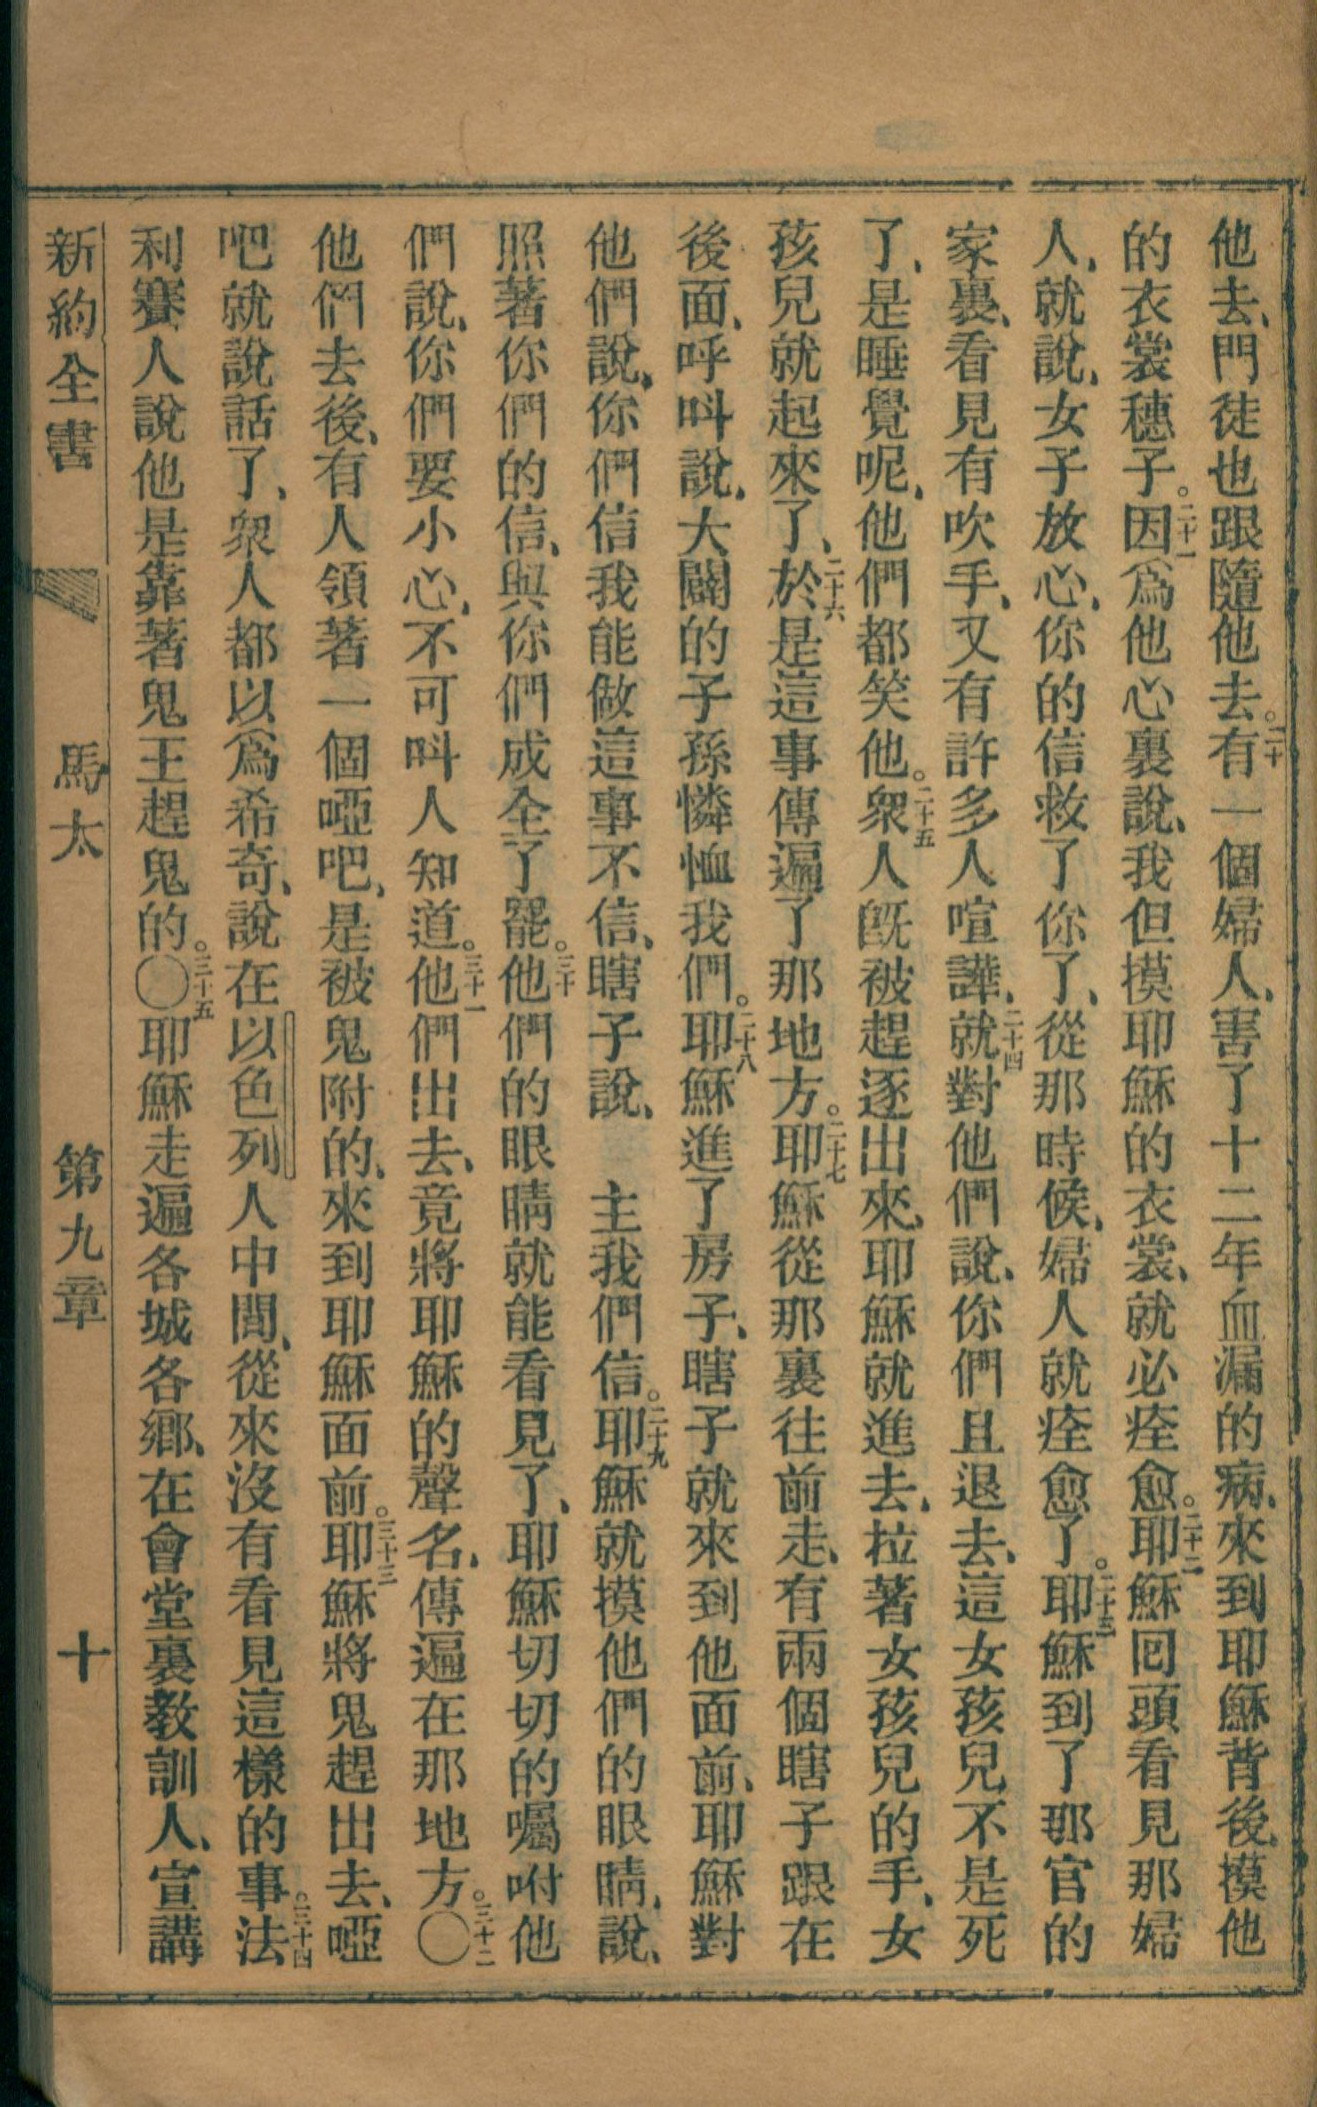 他去、門徒也跟隨他去。二十有一個婦人、害了十二年血漏的病、來到耶穌背後、摸他
的衣裳穗子。二十一因爲他心裏說、我但摸耶穌的衣裳、就必痊愈。二十二耶穌囘頭看見那婦
人、就說、女子放心、你的信救了你了、從那時候、婦人就痊愈了。二十三耶穌到了那官的
家裏、看見有吹手、又有許多人喧譁、二十四就對他們說、你們且退去、這女孩兒不是死
了、是睡覺呢、他們都笑他。二十五衆人旣被趕逐出來、耶穌就進去、拉著女孩兒的手、女
孩兒就起來了、二十六於是這事傳遍了那地方。二十七耶穌從那裏往前走、有兩個瞎子跟在
後面、呼呌說、大闢的子孫憐恤我們。二十八耶穌進了房子、瞎子就來到他面前、耶穌對
他們說、你們信我能做這事不信、瞎子說、　主我們信。二十九耶穌就摸他們的眼睛、說、
照著你們的信、與你們成全了罷。三十他們的眼睛就能看見了、耶穌切切的囑咐他
們說、你們要小心、不可呌人知道。三十一他們出去、竟將耶穌的聲名、傳遍在那地方。三十二〇
他們去後、有人領著一個啞吧、是被鬼附的、來到耶穌面前。三十三耶穌將鬼趕出去、啞
吧就說話了、衆人都以爲希奇、說在以色列人中間、從來沒有看見這樣的事。三十四法
利賽人說他是靠著鬼王趕鬼的。三十五〇耶穌走遍各城各鄉、在會堂裏教訓人、宣講
新約全書　馬太　第九章　十